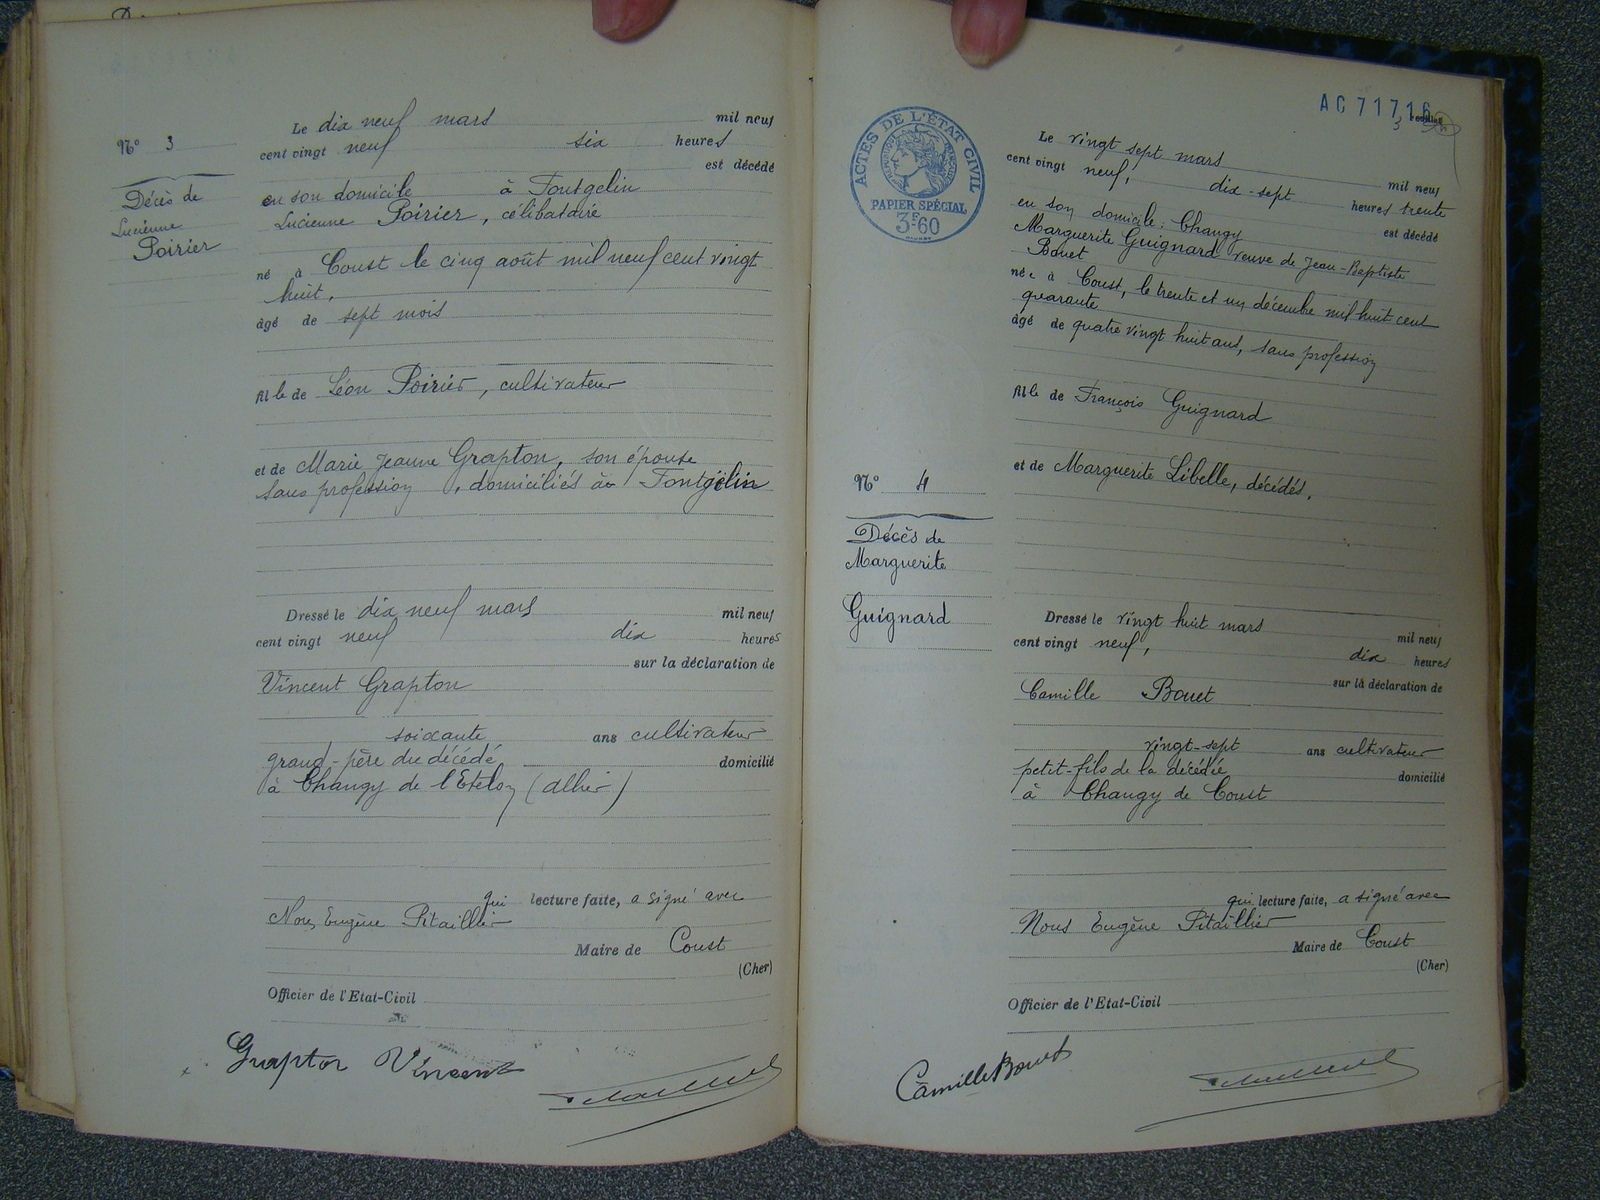 N° 3
Décès de
Lucienne
Poirier
Le dix neuf mars mil neuf
cent vingt neuf six heures
est décédé
en son domicile à Fontgelin
Lucienne Poirier, célibataire
né à Coust le cinq août mil neuf cent vingt
huit,
âgé de sept mois
fille de Léon Poirier, cultivateur
et de Marie Jeanne Grapton, son épouse
sans profession, domiciliés à Fontgelin
Dressé le dix neuf mars mil neuf
cent vingt neuf dix heures
sur la déclaration de
Vincent Grapton
soixante ans cultivateur
grand-père du décédé domicilié
à Changy de l'Etelon (allier)
qui lecture faite, a signé avec
Nous Eugène Pitaillier
Maire de Coust
(Cher)
Officier de l'Etat-Civil
Grapton Vincent
AC 71716
ACTES DE L'ÉTAT CIVIL
PAPIER SPÉCIAL
3F60
N° 4
Décès de
Marguerite
Guignard
Le vingt sept mars mil neuf
cent vingt neuf, dix-sept heures trente
est décédé
en son domicile : Changy
Marguerite Guignard veuve de Jean-Baptiste
Bouet
née à Coust, le trente et un décembre mil huit cent
quarante
âgé de quatre vingt huit ans, sans profession
fille de François Guignard
et de Marguerite Libelle, décédés,
Dressé le vingt huit mars mil neuf
cent vingt neuf, dix heures
sur la déclaration de
Camille Bouet
vingt-sept ans cultivateur
petit-fils de la décédée domicilié
à Changy de Coust
qui lecture faite, a signé avec
Nous Eugène Pitaillier
Maire de Coust
(Cher)
Officier de l'Etat-Civil
Camille Bouet